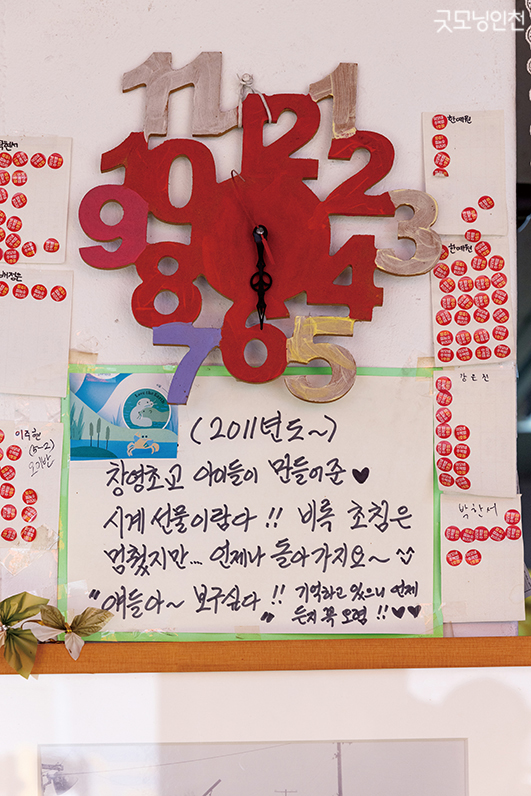 굿모닝인천
11
12
1
10
2
9
3
8
4
7
6
5
한예원
한예원
강은진
이주현
(5-2)
박한서
(2011년도~)
창영초교 아이들이 만들어준 ♥
시계 선물이랍다!! 비록 초침은
멈췄지만... 언제나 돌아가지요~
"얘들아~ 보구싶다!!" 기억하고 있으니 언제
든지 꼭 오렴!! ♥♥